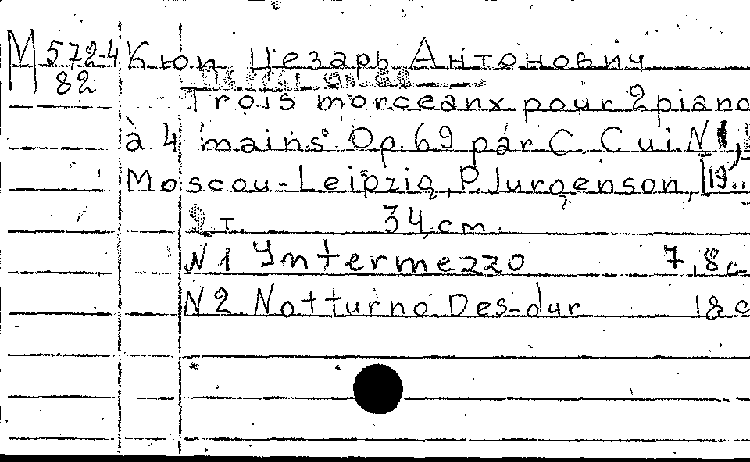 М 572-4 Кюи Цезарь Антонович
82
Trois morceaux pour 2 piano
à 4 mains Op. 69 par C. Cui. N 1,
Moscou-Leipzig, P. Jurgenson, [19..
2 т. 34 cm.
N 1 Intermezzo 7,8 c
N 2. Notturno Des-dur 18 c